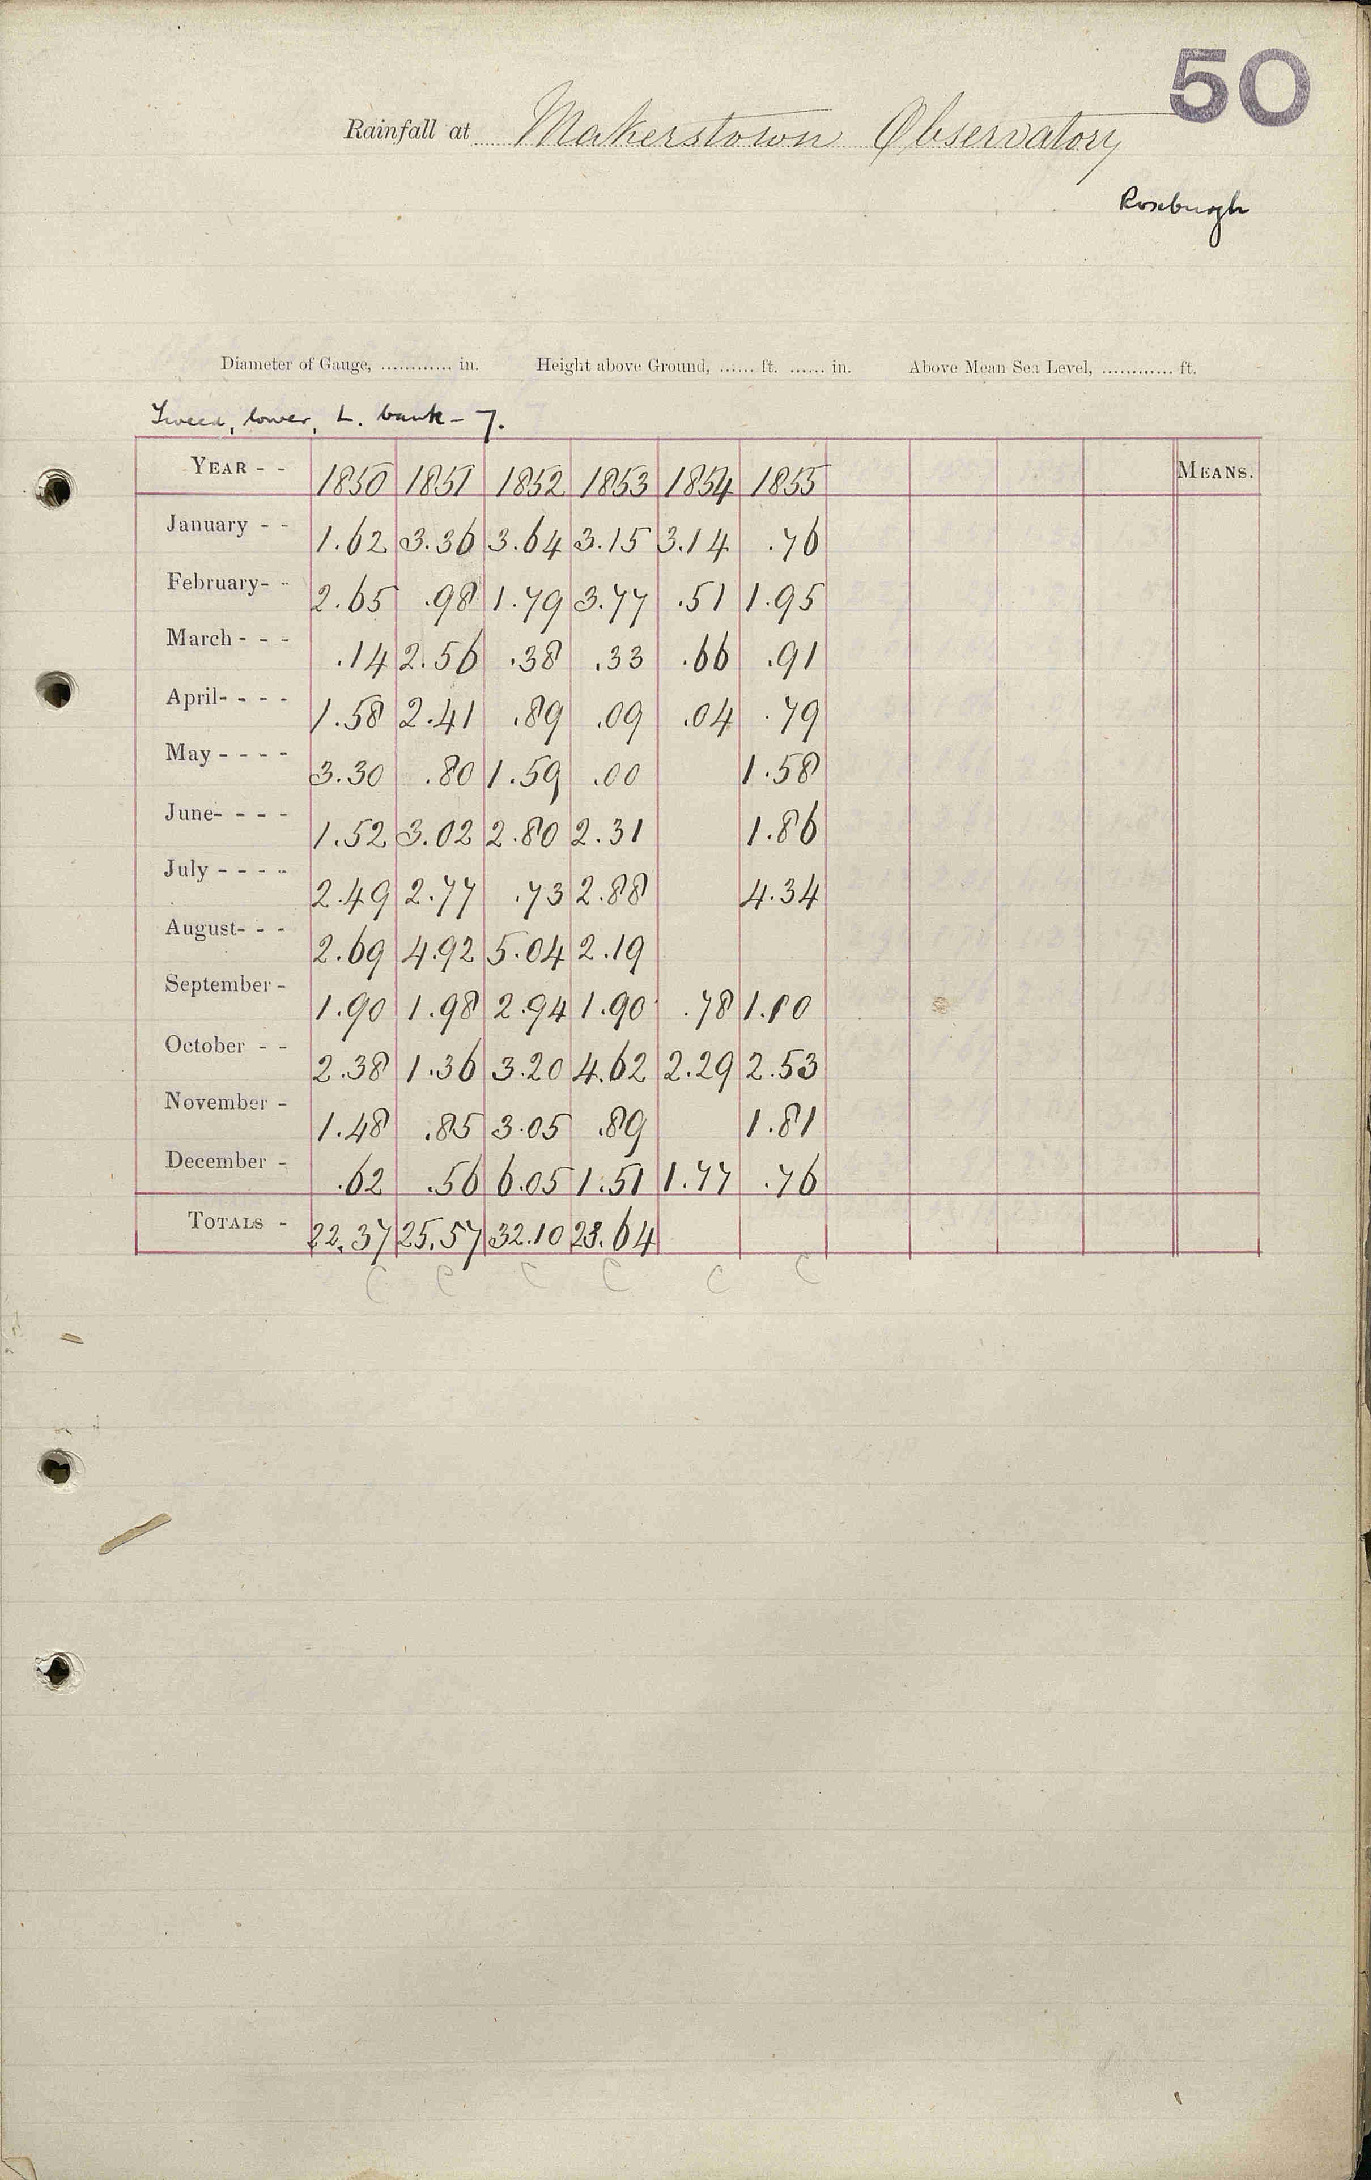 50
Rainfall at Makerstown Observatory
Roxburgh
Diameter of Gauge, ............ in. Height above Ground, ...... ft. ...... in. Above Mean Sea Level, ............ ft.
Tweed, lower, L. bank - 7.
YEAR - - 1850 1851 1852 1853 1854 1855 MEANS.
January - - 1.62 3.36 3.64 3.15 3.14 .76
February- - 2.65 .98 1.79 3.77 .51 1.95
March - - - .14 2.56 .38 .33 .66 .91
April- - - - 1.58 2.41 .89 .09 .04 .79
May - - - - 3.30 .80 1.59 .00 1.58
June- - - - 1.52 3.02 2.80 2.31 1.86
July - - - - 2.49 2.77 .73 2.88 4.34
August- - - 2.69 4.92 5.04 2.19
September - 1.90 1.98 2.94 1.90 .78
October - - 2.38 1.36 3.20 4.62 2.29 2.53
November - 1.48 .85 3.05 .89 1.81
December - .62 .56 6.05 1.51 1.77 .76
TOTALS - 22.37 25.57 32.10 23.64
C C C C C C